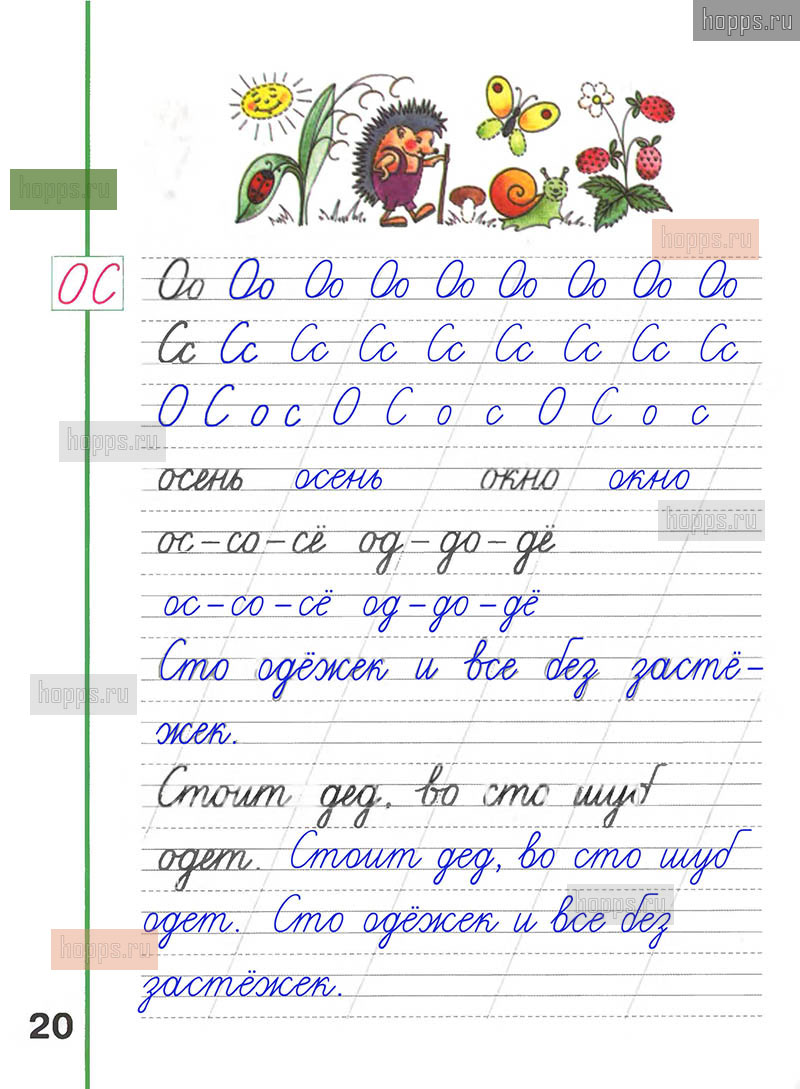 hopps.ru
hopps.ru
hopps.ru
О С
Оо Оо Оо Оо Оо Оо Оо Оо Оо
Сс Сс Сс Сс Сс Сс Сс Сс Сс
О С о с О С о с О С о с
hopps.ru
осень осень окно окно
hopps.ru
ос – со – сё од – до – дё
ос – со – сё од – до – дё
Сто одёжек и все без застё–
hopps.ru
жек.
Стоит дед, во сто шуб
одет. Стоит дед, во сто шуб
hopps.ru
одет. Сто одёжек и все без
hopps.ru
застёжек.
20